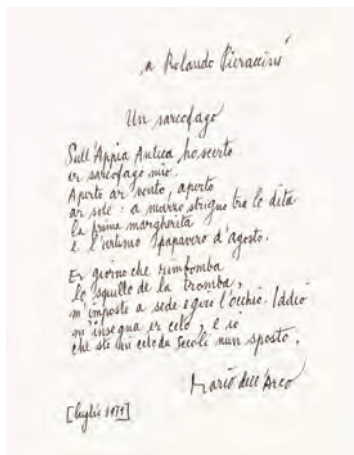 a Rolando Pieraccini
Un sarcofago
Sull'Appia Antica ho scerto
er sarcofago mio.
Aperto ar vento, aperto
ar sole: a marzo strigno tra le dita
la prima margherita
e l'urtimo papavero d'agosto.
Er giorno che rimbomba
lo squillo de la tromba,
m'imposto a sede e giro l'occhio. Iddio
m'insegna er celo, e io
che sto in celo da secoli nun sposto.
Mario dell'Arco
[luglio 1979]